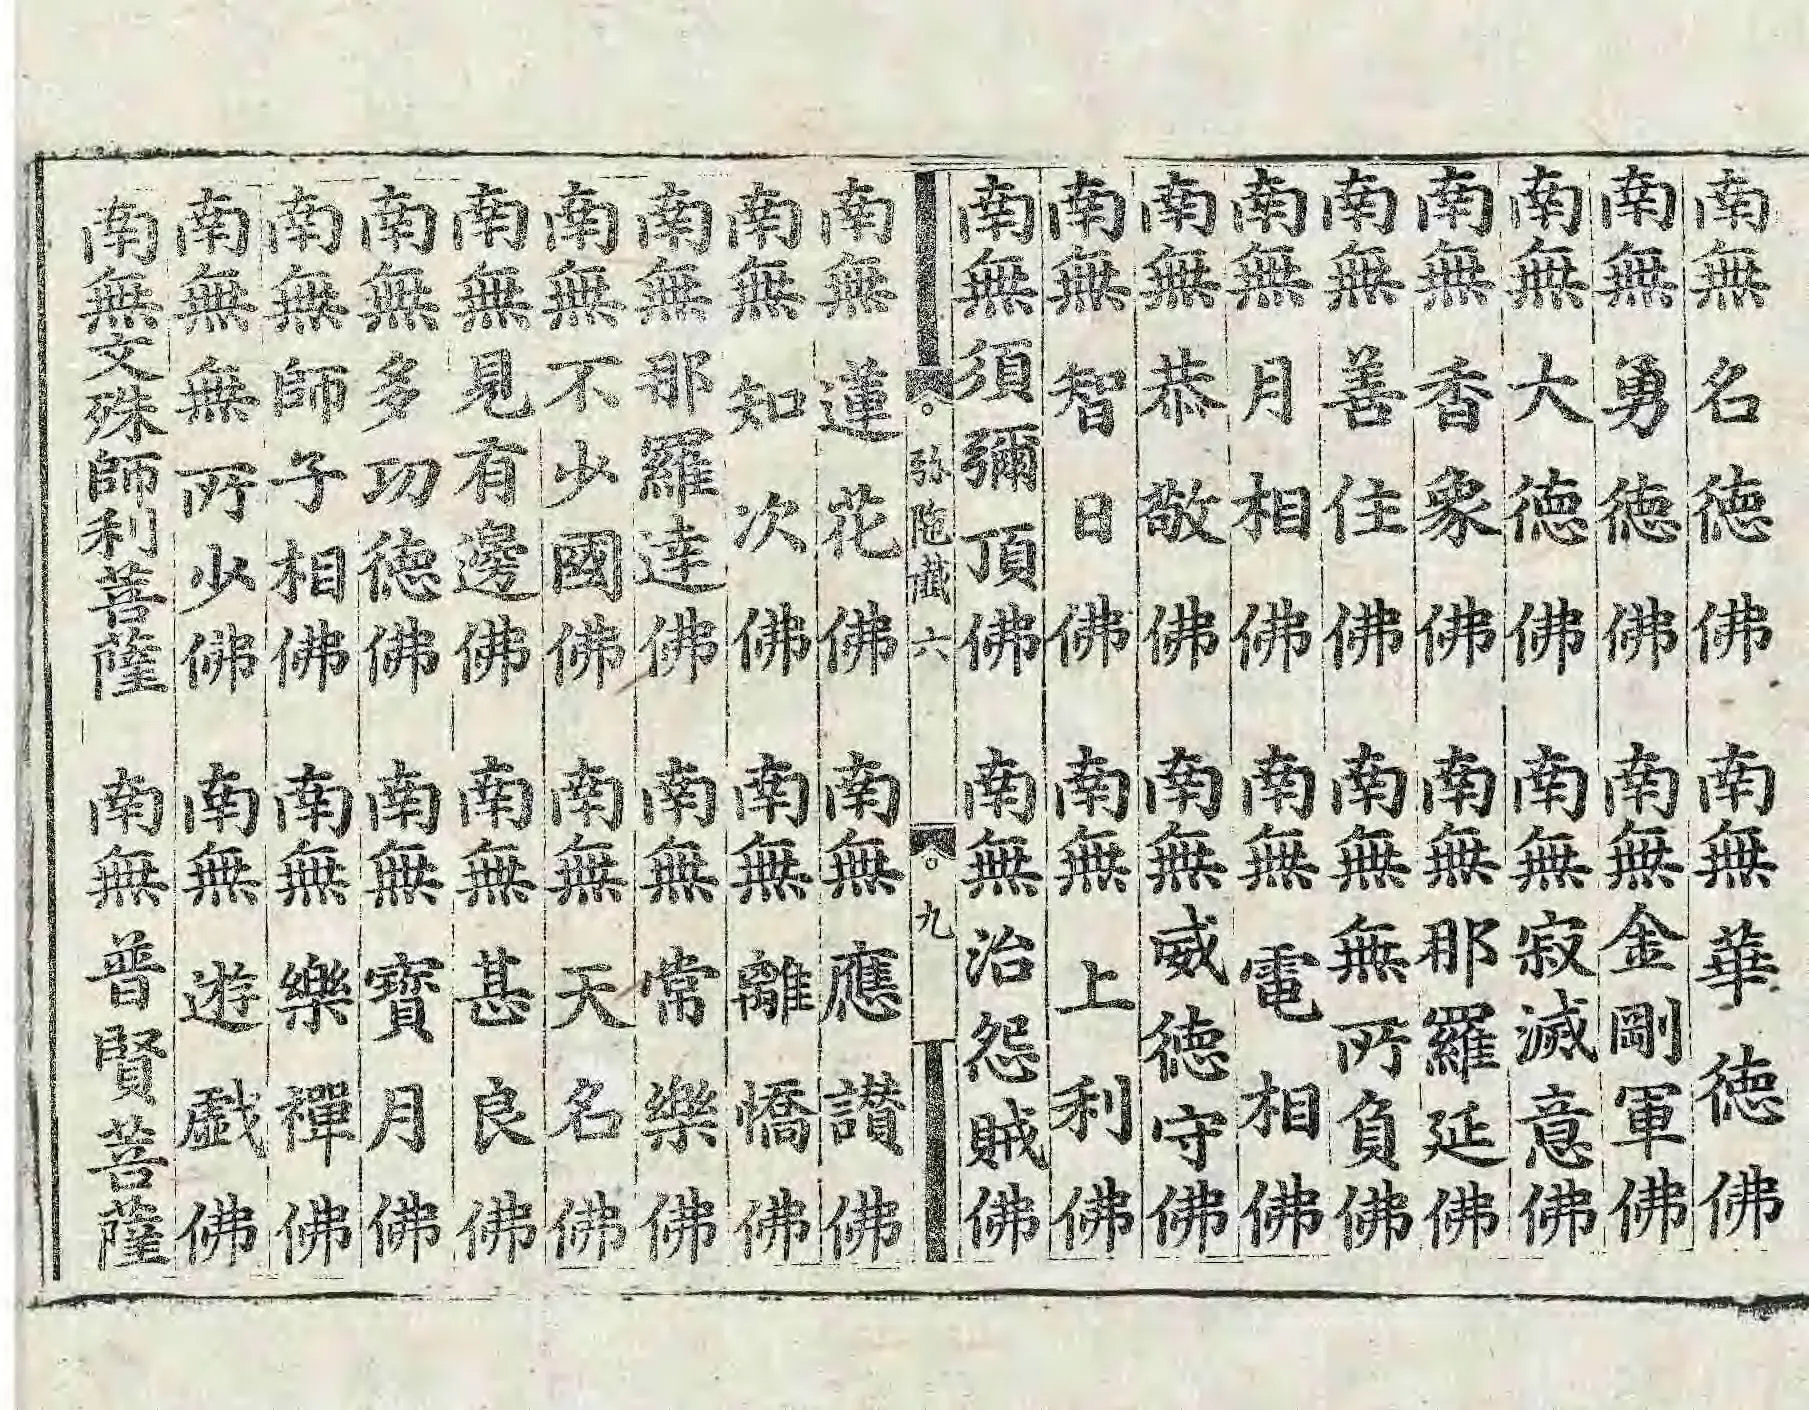 南無名德佛　南無華德佛
南無勇德佛　南無金剛軍佛
南無大德佛　南無寂滅意佛
南無香象佛　南無那羅延佛
南無善住佛　南無無所負佛
南無月相佛　南無電相佛
南無恭敬佛　南無威德守佛
南無智日佛　南無上利佛
南無須彌頂佛　南無治怨賊佛
弥陁懴六　九
南無蓮花佛　南無應讃佛
南無知次佛　南無離憍佛
南無那羅達佛　南無常樂佛
南無不少國佛　南無天名佛
南無見有邊佛　南無甚良佛
南無多功德佛　南無寶月佛
南無師子相佛　南無樂禪佛
南無無所少佛　南無遊戱佛
南無文殊師利菩薩　南無普賢菩薩